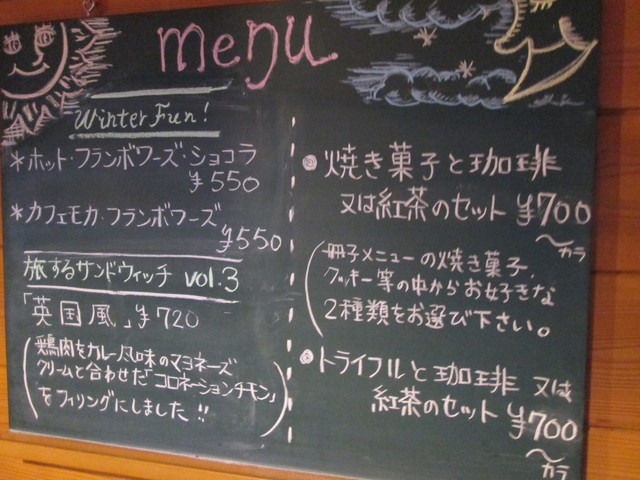 menu
Winter Fun!
*ホット・フランボワーズ・ショコラ
¥550
*カフェモカ・フランボワーズ
¥550
旅するサンドウィッチ vol.3
「英国風」¥720
(鶏肉をカレー風味のマヨネーズ
クリームと合わせた「コロネーションチキン」
をフィリングにしました!!)
焼き菓子と珈琲
又は紅茶のセット ¥700
〜カラ
(冊子メニューの焼き菓子、
クッキー等の中からお好きな
2種類をお選び下さい。
トライフルと珈琲 又は
紅茶のセット ¥700
〜カラ